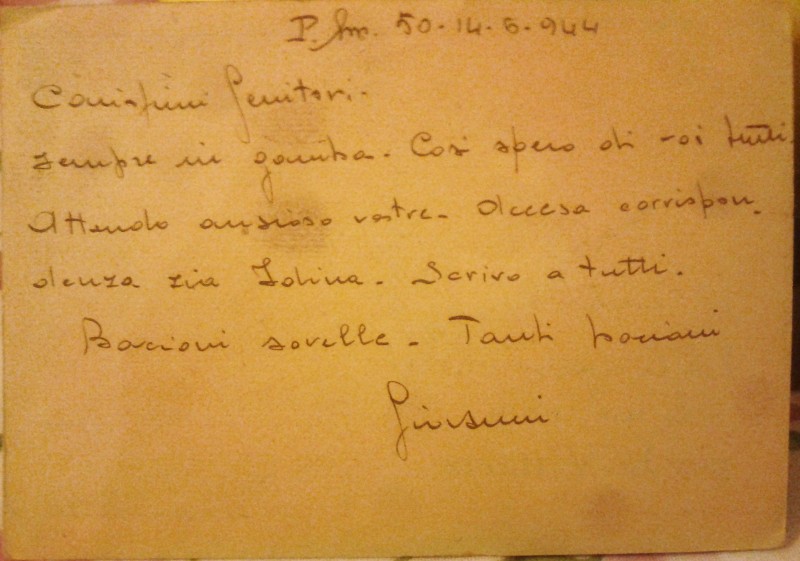 P.M. 50-14-6-944
Carissimi Genitori.
sempre in gamba. Così spero di voi tutti.
Attendo ansioso vostre. Accesa corrispon.
denza zia Idina. Scrivo a tutti.
Bacioni sorelle. Tanti bacioni